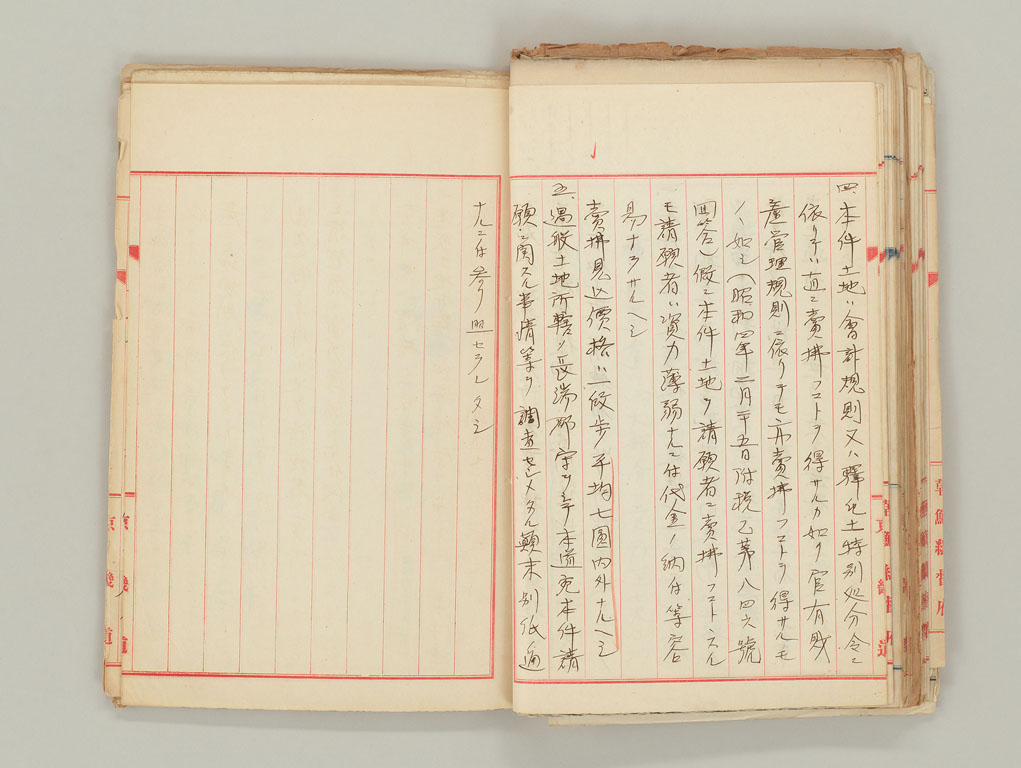 四、本件土地ハ會計規則又ハ驛屯土特別処分令ニ
依リテハ直ニ賣拂フコトヲ得サルカ如ク官有財
産管理規則ニ依リテモ亦賣拂フコトヲ得サルモ
ノヽ如シ(昭和四年二月二十五日附税乙第八四六號
回答)假ニ本件土地ヲ請願者ニ賣拂フコトヽスル
モ請願者ハ資力薄弱ナルニ付代金ノ納付等容
易ナラサルヘシ
賣拂見込價格ハ一段歩平均七圓内外ナルヘシ
五、過般土地所轄ノ長湍郡守ヲシテ本道宛本件請
願ニ関スル事情等ヲ調査セシメタル顛末別紙ノ通
ナルニ付参照セラレタシ
朝鮮總督府
京畿道